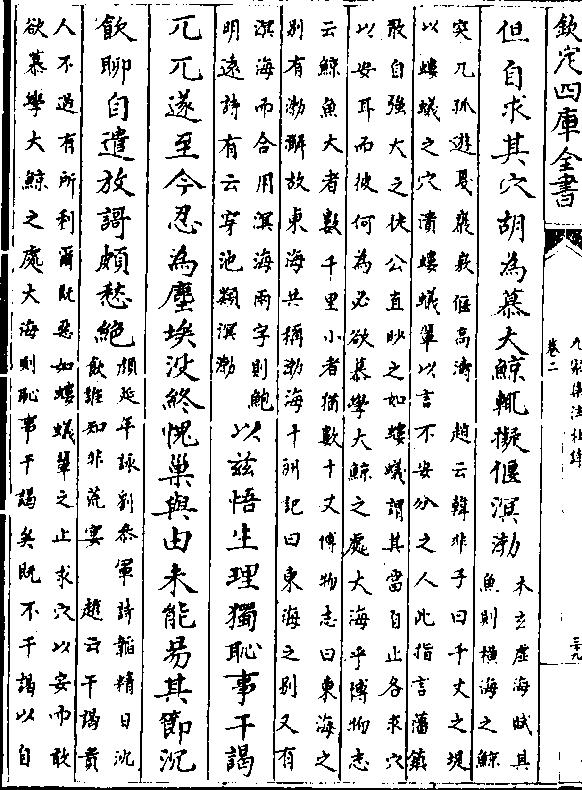 欽定四庫全書
九家集注杜詩
卷二
三十九
但自求其穴胡為慕大鯨輒擬偃溟渤
木玄虛海賦其
魚則橫海之鯨
突兀孤遊戛巖嶅偃高濤 趙云韓非子曰千丈之堤
以螻蟻之穴潰螻蟻輩以言不安分之人此指言藩鎮
敢自強大之徒公直眇之如螻蟻謂其當自止各求穴
以安耳而彼何為必欲慕學大鯨之處大海乎博物志
云鯨魚大者數千里小者猶數十丈博物志曰東海之
別有渤澥故東海共稱渤海十洲記曰東海之別又有
溟海而合用溟海兩字則鮑
明遠詩有云穿池類溟渤
以兹悟生理獨恥事干謁
兀兀遂至今忍為塵埃没終愧巢與由未能易其節沉
飲聊自遣放謌頗愁絶
顔延年詠劉叅軍詩韜精日沉
飲誰知非荒宴 趙云干謁貴
人不過有所利爾既惡如螻蟻輩之止求穴以安而敢
欲慕學大鯨之處大海則恥事干謁矣既不干謁以自